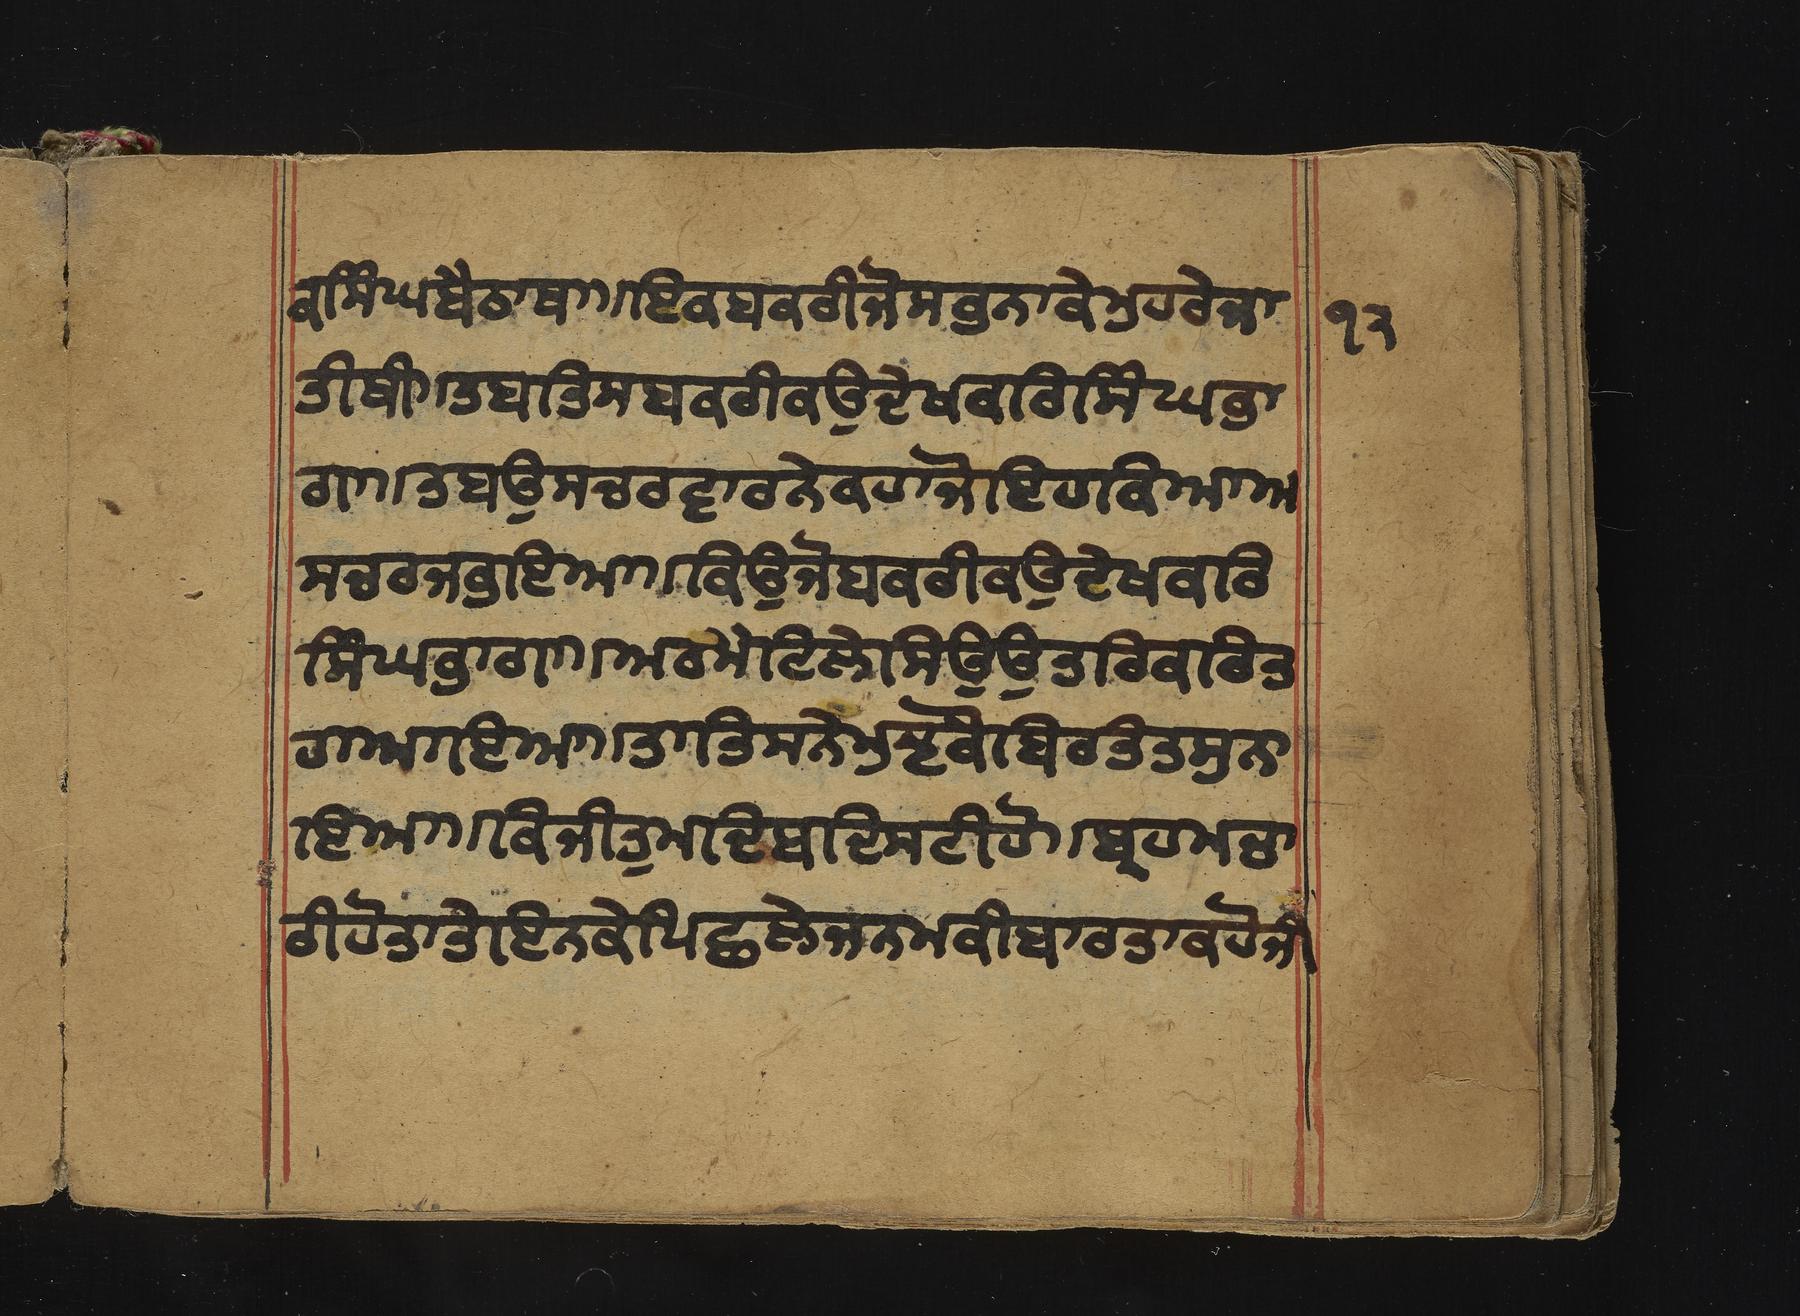 ਕਸਿੰਘਬੈਠਾਥਾ।।ਇਕਬਕਰੀਜੋਸਭੁਨਾਕੇਮੁਹਰੇਜਾ
੧੨
ਤੀਥੀ।ਤਬਤਿਸਬਕਰੀਕਉਦੇਖਕਰਿਸਿੰਘਭਾ
ਗਾ।।ਤਬਉਸਚਰਵਾਰਨੇਕਹਾਜੋਇਹਕਿਆਅ
ਸਚਰਜਭਇਆ।।ਕਿਉਜੋਬਕਰੀਕਉਦੇਖਕਰਿ
ਸਿੰਘਭਾਗਾ।।ਅਰਮੈਟਿਲੇਸਿਉਉਤਰਿਕਰਿਤ
ਹਾਆਇਆ।।ਤਾਤਿਸਨੇਮੁਝਕੋਬਿਰਤੰਤਸੁਨਾ
ਇਆ।।ਕਿਜੀਤੁਮਦਿਬਦਿਸਟੀਹੋ।ਬ੍ਰਹਮਚਾ
ਰੀਹੋਤਾਤੇਇਨਕੇਪਿਛਲੇਜਨਮਕੀਬਾਰਤਾਕਹੋਜੀ